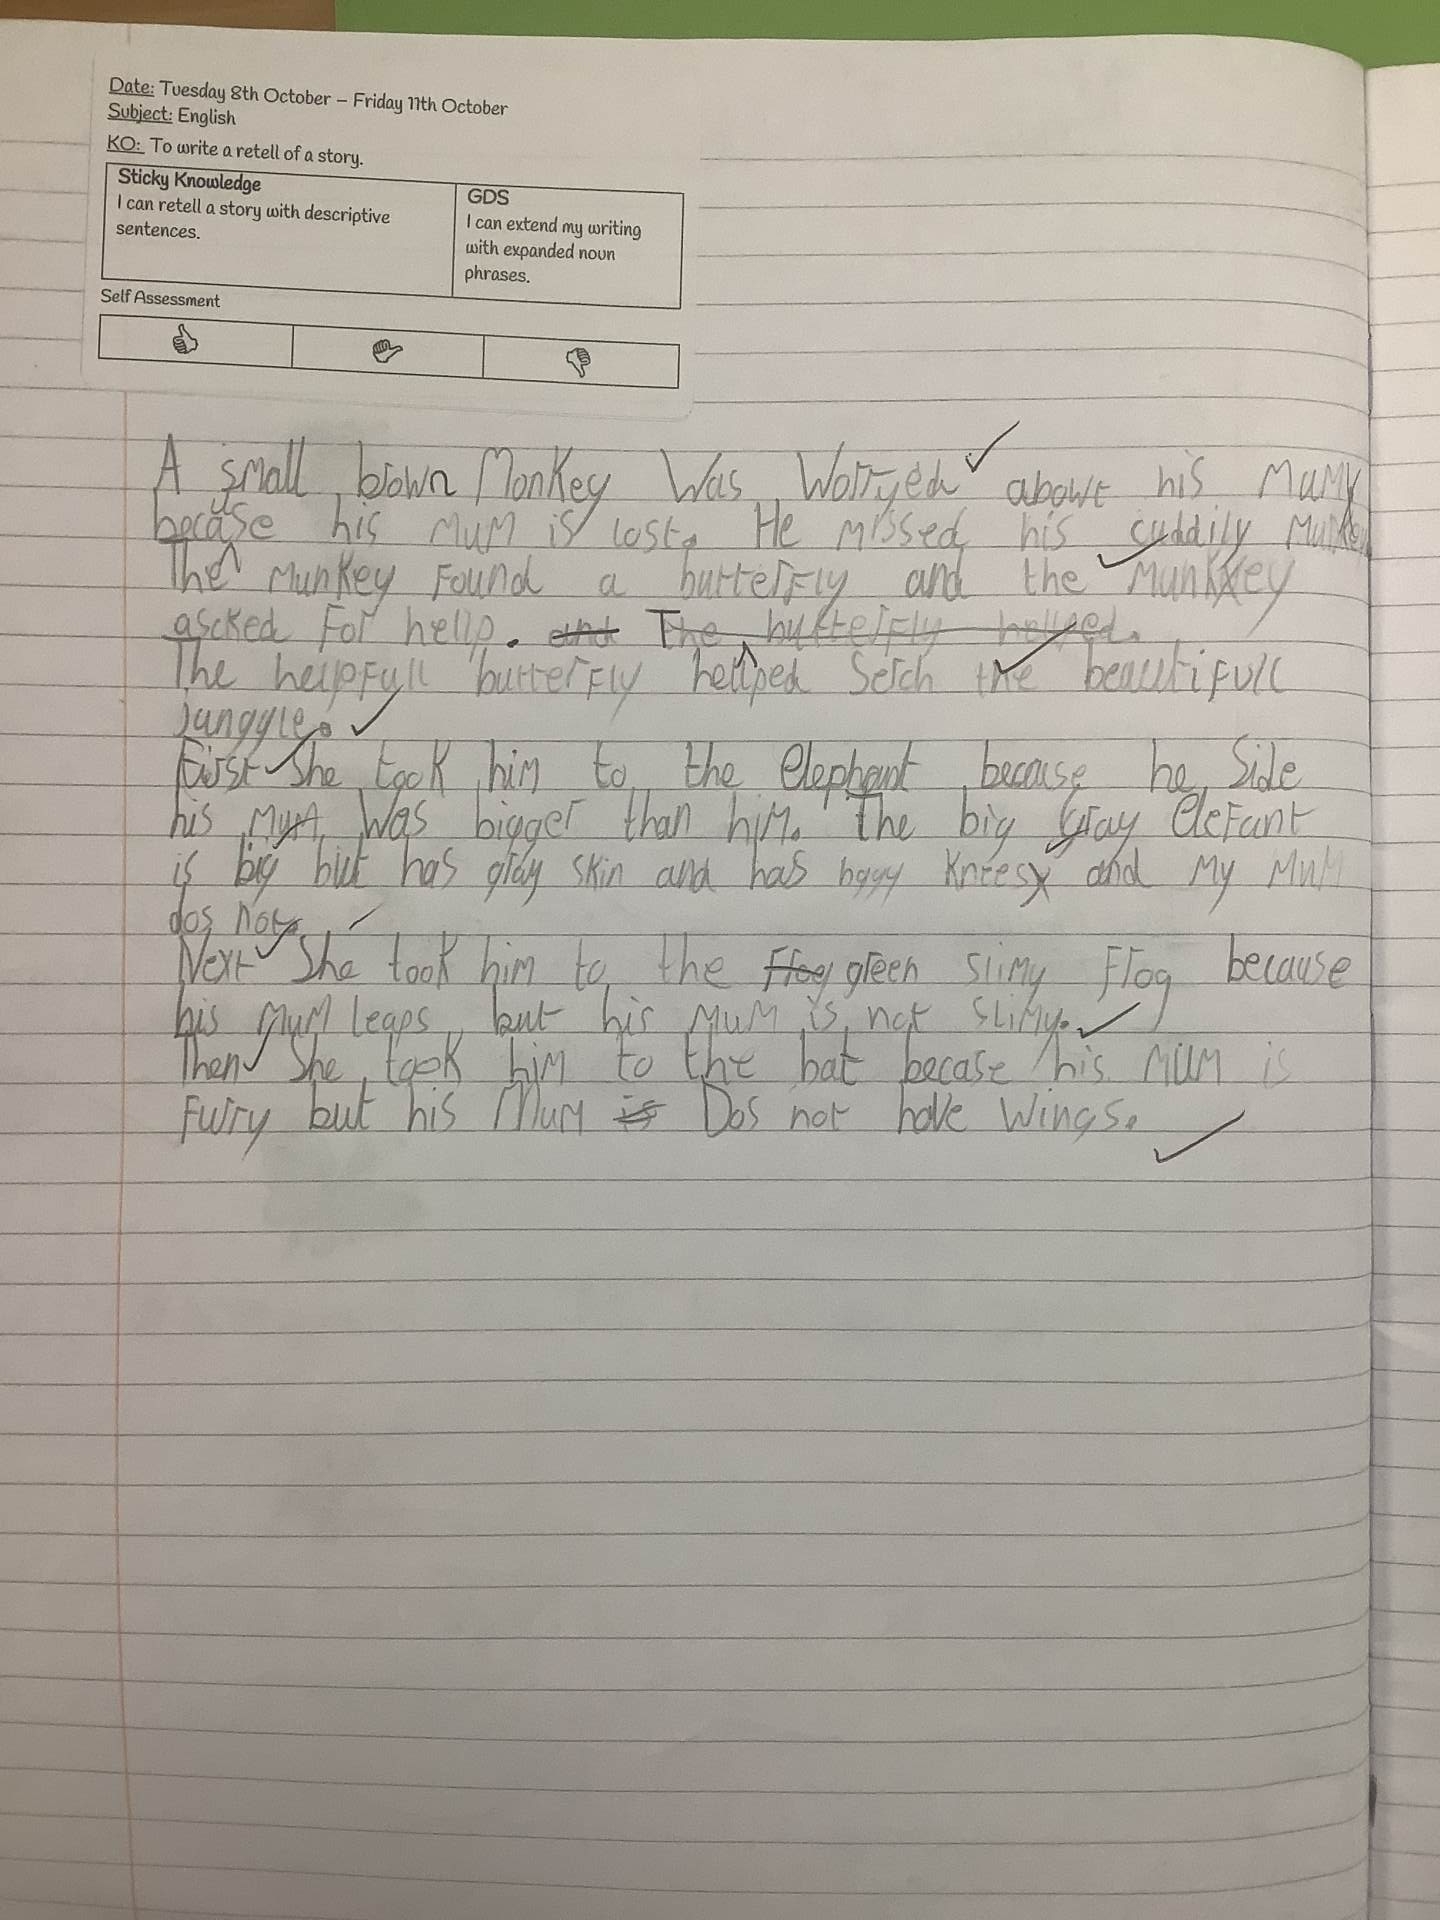 Date: Tuesday 8th October – Friday 11th October
Subject: English
KO: To write a retell of a story.
Sticky Knowledge
I can retell a story with descriptive
sentences.
GDS
I can extend my writing
with expanded noun
phrases.
Self Assessment
A small brown Monkey Was Worryed abowt his Mumy
becauase his Mum is lost. He missed his cuddily Munkey
The Munkey Found a butterFly and the Munkxey
ascked For hellp. and The butterFly hellped.
The helpFull butterFly hellped Serch the beautiFull
Janggle.
First She took him to the elephant because he Side
his Mum Was bigger than him. The big Gray eleFant
is big but has gray skin and has bggy Knees and My Mum
dos not.
Next She took him to the Frog green slimy Frog because
his Mum leaps but his Mum is not slimy.
Then She took him to the bat becase his Mum is
Furry but his Mum is Dos not have Wings.